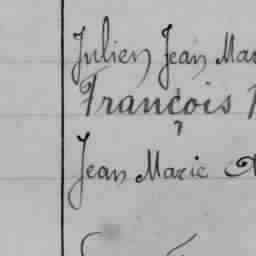 Julien Jean Mar
François
Jean Marie